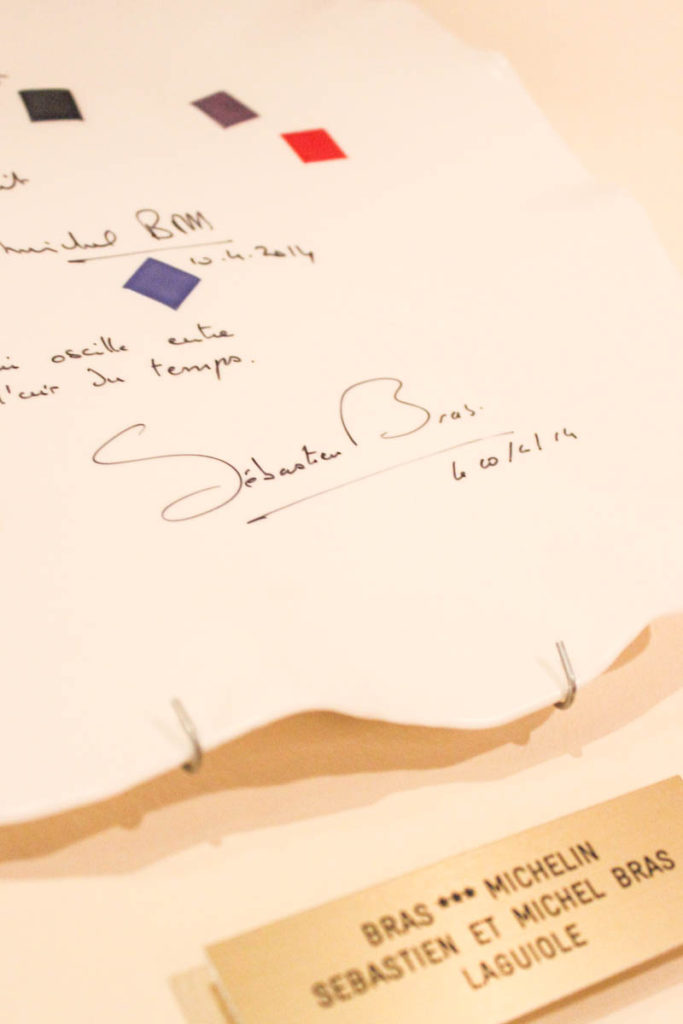 michel BRAS
10.4.2014
oscille entre
du temps.
Sébastien Bras.
BRAS *** MICHELIN
SEBASTIEN ET MICHEL BRAS
LAGUIOLE